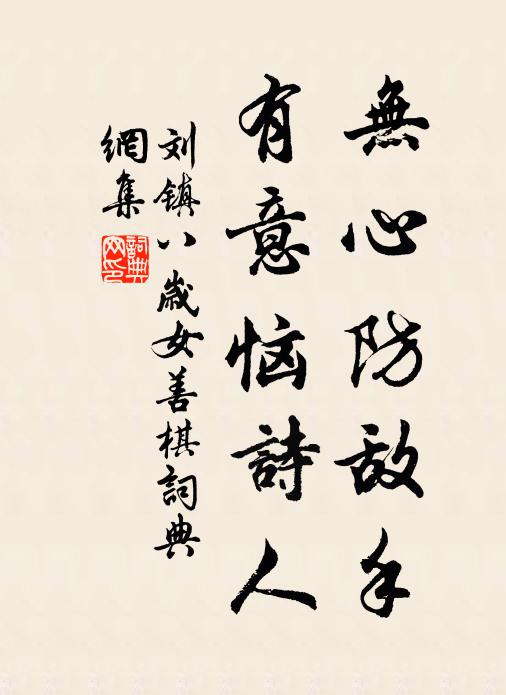 無心防敌手
有意恼詩人
刘镇八歲女善棋詞典
網集
詞典
网印